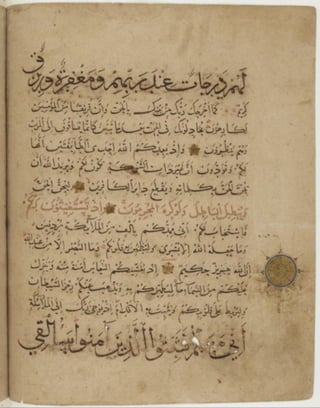 لهم درجات عند ربهم ومغفرة ورزق
كريم كما أخرجك ربك من بيتك بالحق وإن فريقا من المؤمنين
لكارهون يجادلونك في الحق بعد ما تبين كأنما يساقون إلى الموت
وهم ينظرون وإذ يعدكم الله إحدى الطائفتين أنها
لكم وتودون أن غير ذات الشوكة تكون لكم ويريد الله أن
يحق الحق بكلماته ويقطع دابر الكافرين ليحق الحق
ويبطل الباطل ولو كره المجرمون إذ تستغيثون ربكم
فاستجاب لكم أني ممدكم بألف من الملائكة مردفين
وما جعله الله إلا بشرى ولتطمئن به قلوبكم وما النصر إلا من عند الله
إن الله عزيز حكيم إذ يغشيكم النعاس أمنة منه وينزل
عليكم من السماء ماء ليطهركم به ويذهب عنكم رجز الشيطان
وليربط على قلوبكم ويثبت به الأقدام إذ يوحي ربك إلى الملائكة
أني معكم فثبتوا الذين آمنوا سألقي